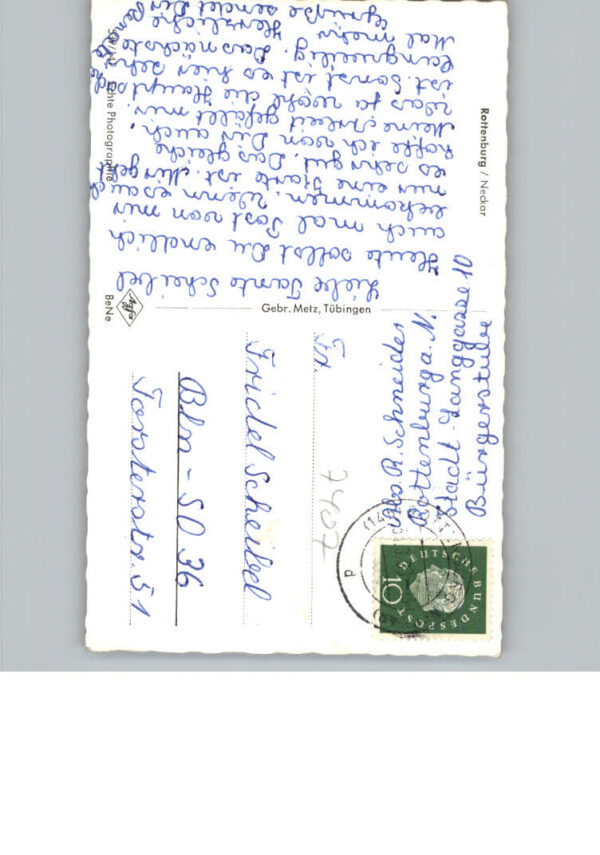 Rottenburg / Neckar
Liebe Tante Scheibel
Heute sollst Du endlich
auch mal Post von mir
bekommen. Wenn es auch
nur eine Karte ist. Mir geht
es sehr gut. Das gleiche
hoffe ich von Dir auch.
Meine Arbeit gefällt mir
was ja wohl die Haupts
ist. Sonst ist es hier sehr
langweilig. Das nächste
Mal mehr. Herzliche
Grüße sendet Dir
Renate
Echte Photographie
Agfa
BeNe
Gebr. Metz, Tübingen
Abs. R. Schneider
Rottenburg a. N.
Stadt-Langgasse 10
Bürgerstube
DEUTSCHE BUNDESPOST
10
7407
Fr.
Fridel Scheibel
Bln - SO 36
Forsterstr. 51